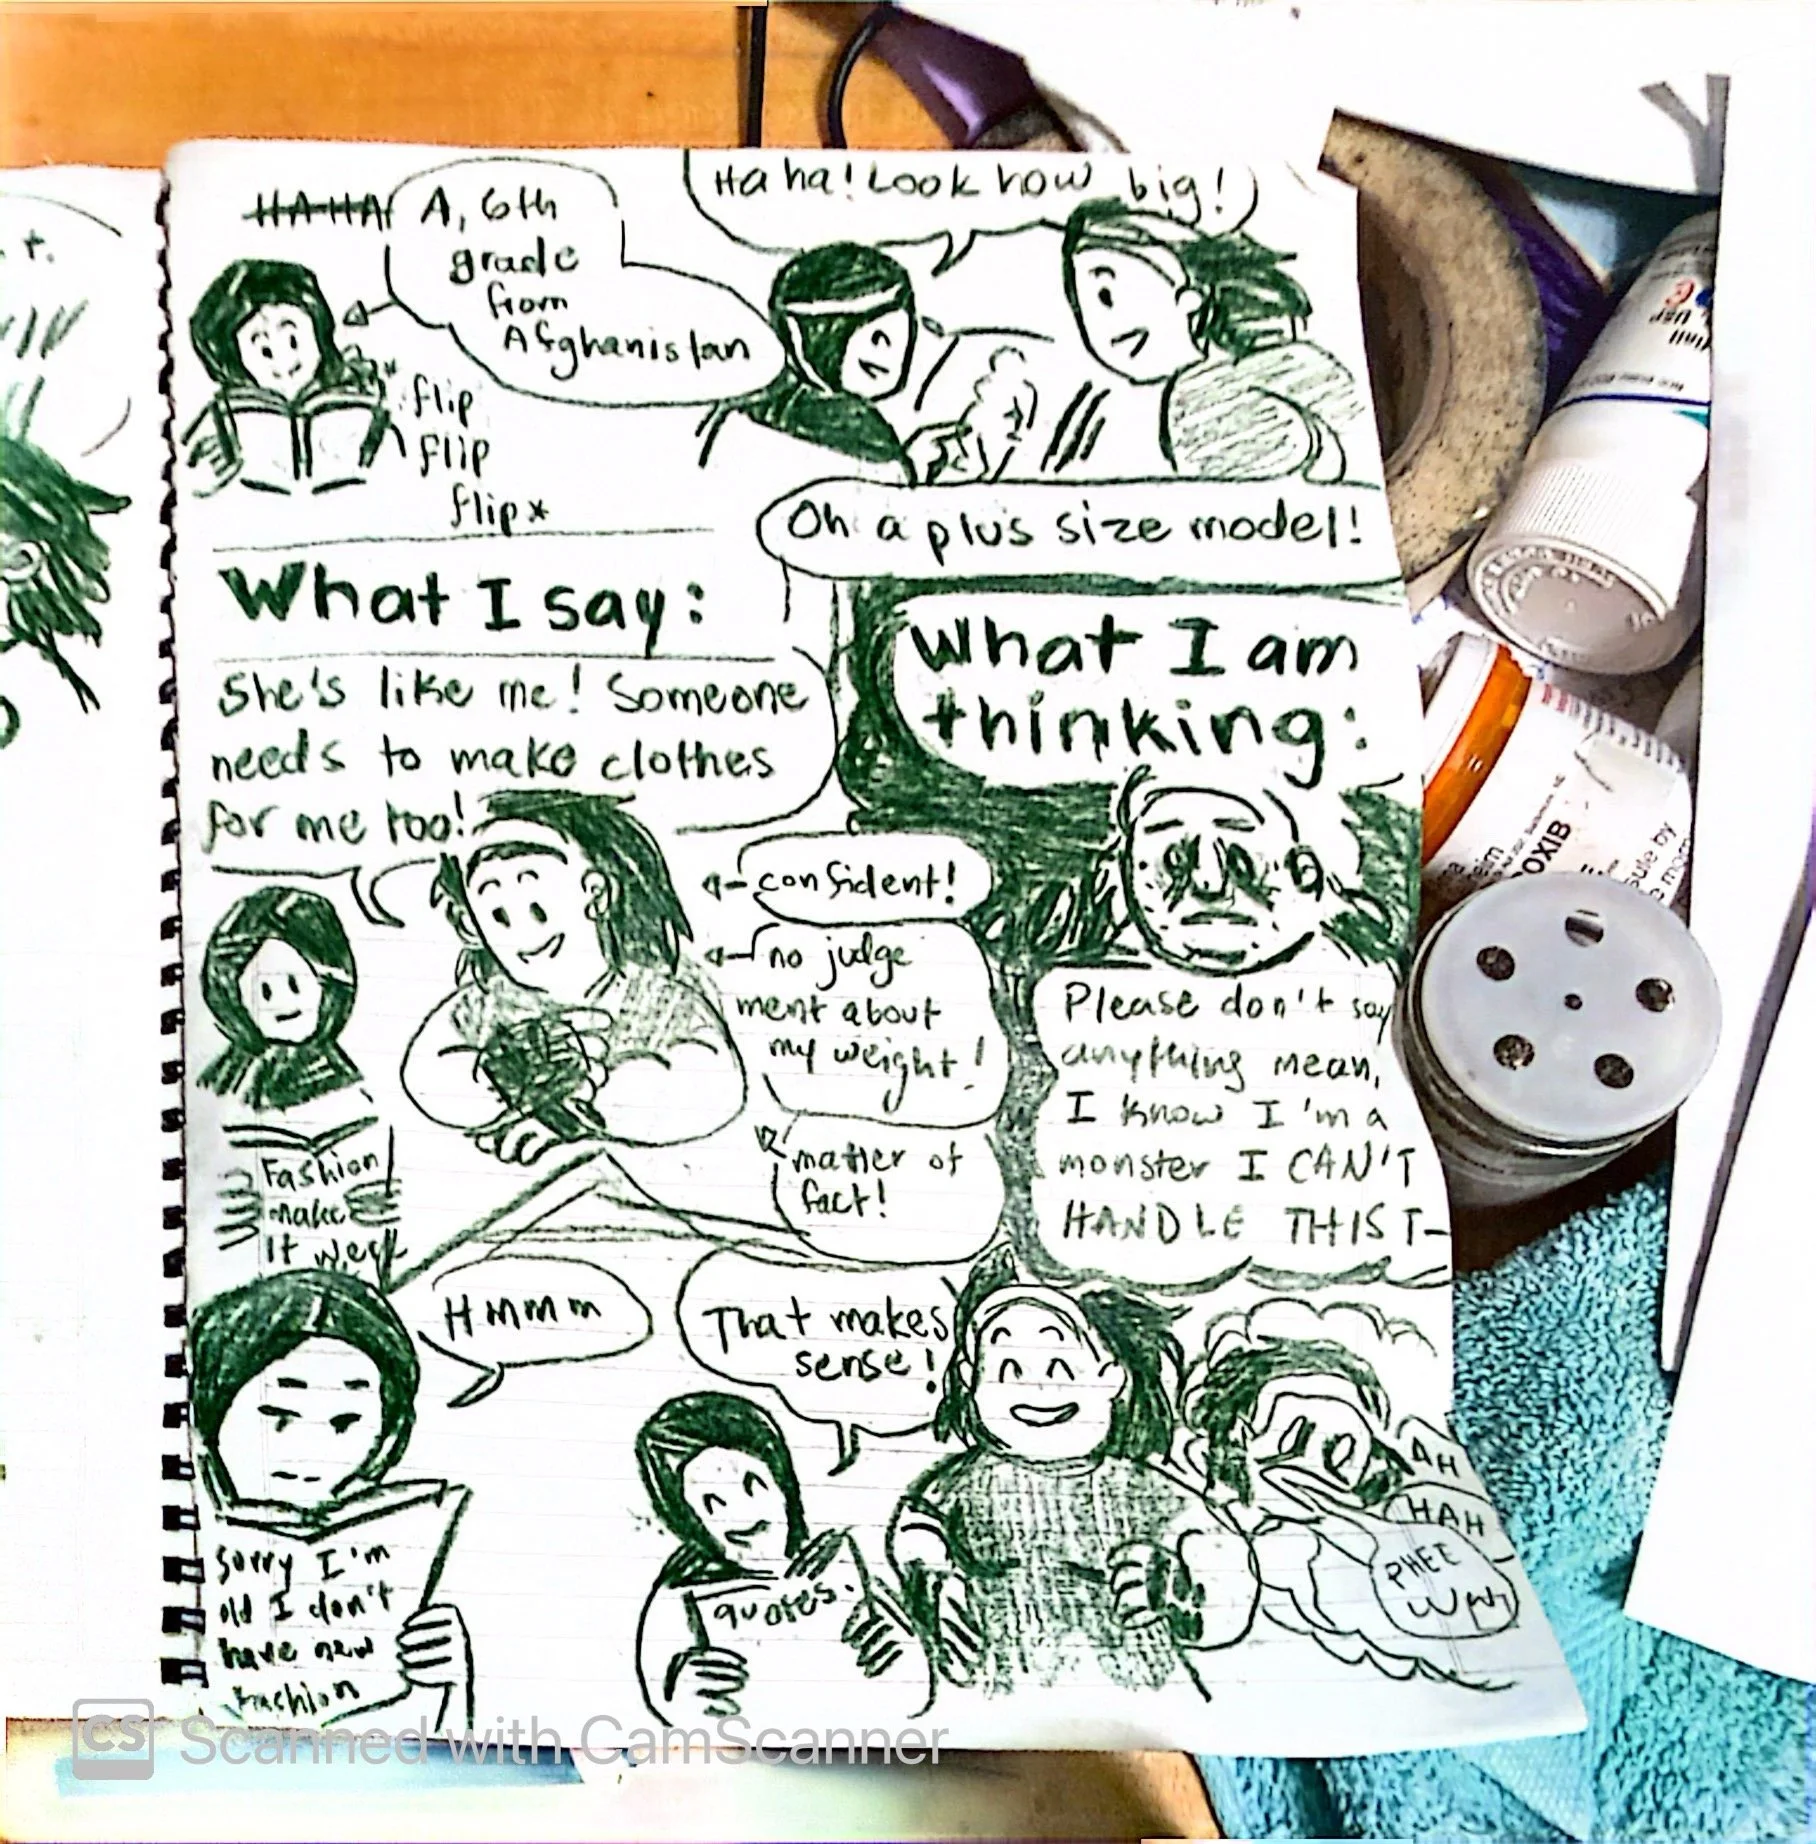 HA HA!
A, 6th
grade
from
Afghanistan
Ha ha! Look how big!
*flip
flip
flip*
Oh a plus size model!
What I say:
She's like me! Someone
needs to make clothes
for me too!
What I am
thinking:
confident!
no judge
ment about
my weight!
matter of
fact!
Please don't say
anything mean,
I know I'm a
monster I CAN'T
HANDLE THIS T-
Fashion
make
it werk
Hmmm
That makes
sense!
Sorry I'm
old I don't
have new
fashion
quotes.
AH
HAH
PHEE
OXIB
sule by
CS Scanned with CamScanner